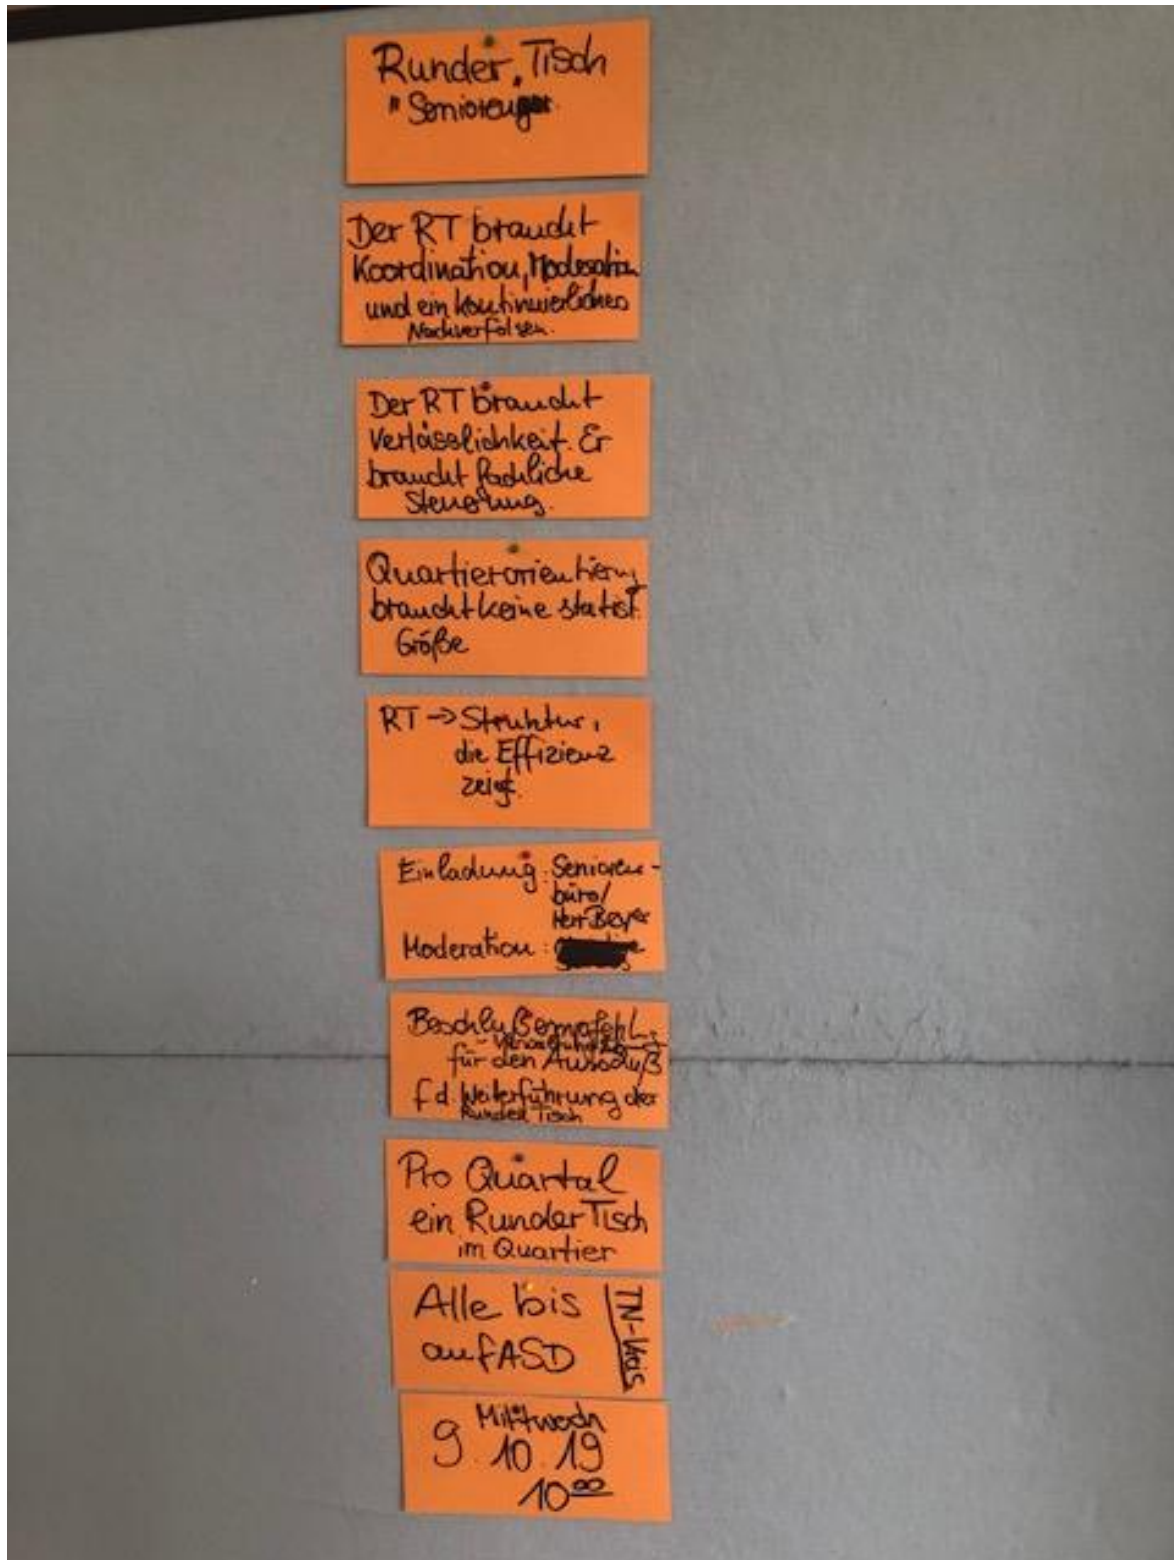 Runder Tisch
"Senioren"
Der RT braucht
Koordination, Moderation
und ein kontinuierliches
Nachverfolgen.
Der RT braucht
Verlässlichkeit. Er
braucht fachliche
Steuerung.
Quartierorientierung
braucht keine statist.
Größe
RT → Struktur,
die Effizienz
zeigt.
Einladung: Senioren-
büro/
Herr Beyer
Moderation:
Beschlußempfehl.
für den Ausschuß
f d. Weiterführung der
Runder Tisch
Pro Quartal
ein Runder Tisch
im Quartier
Alle bis
auf ASD
TN-Kreis
Mittwoch
9.10.19
10⁰⁰